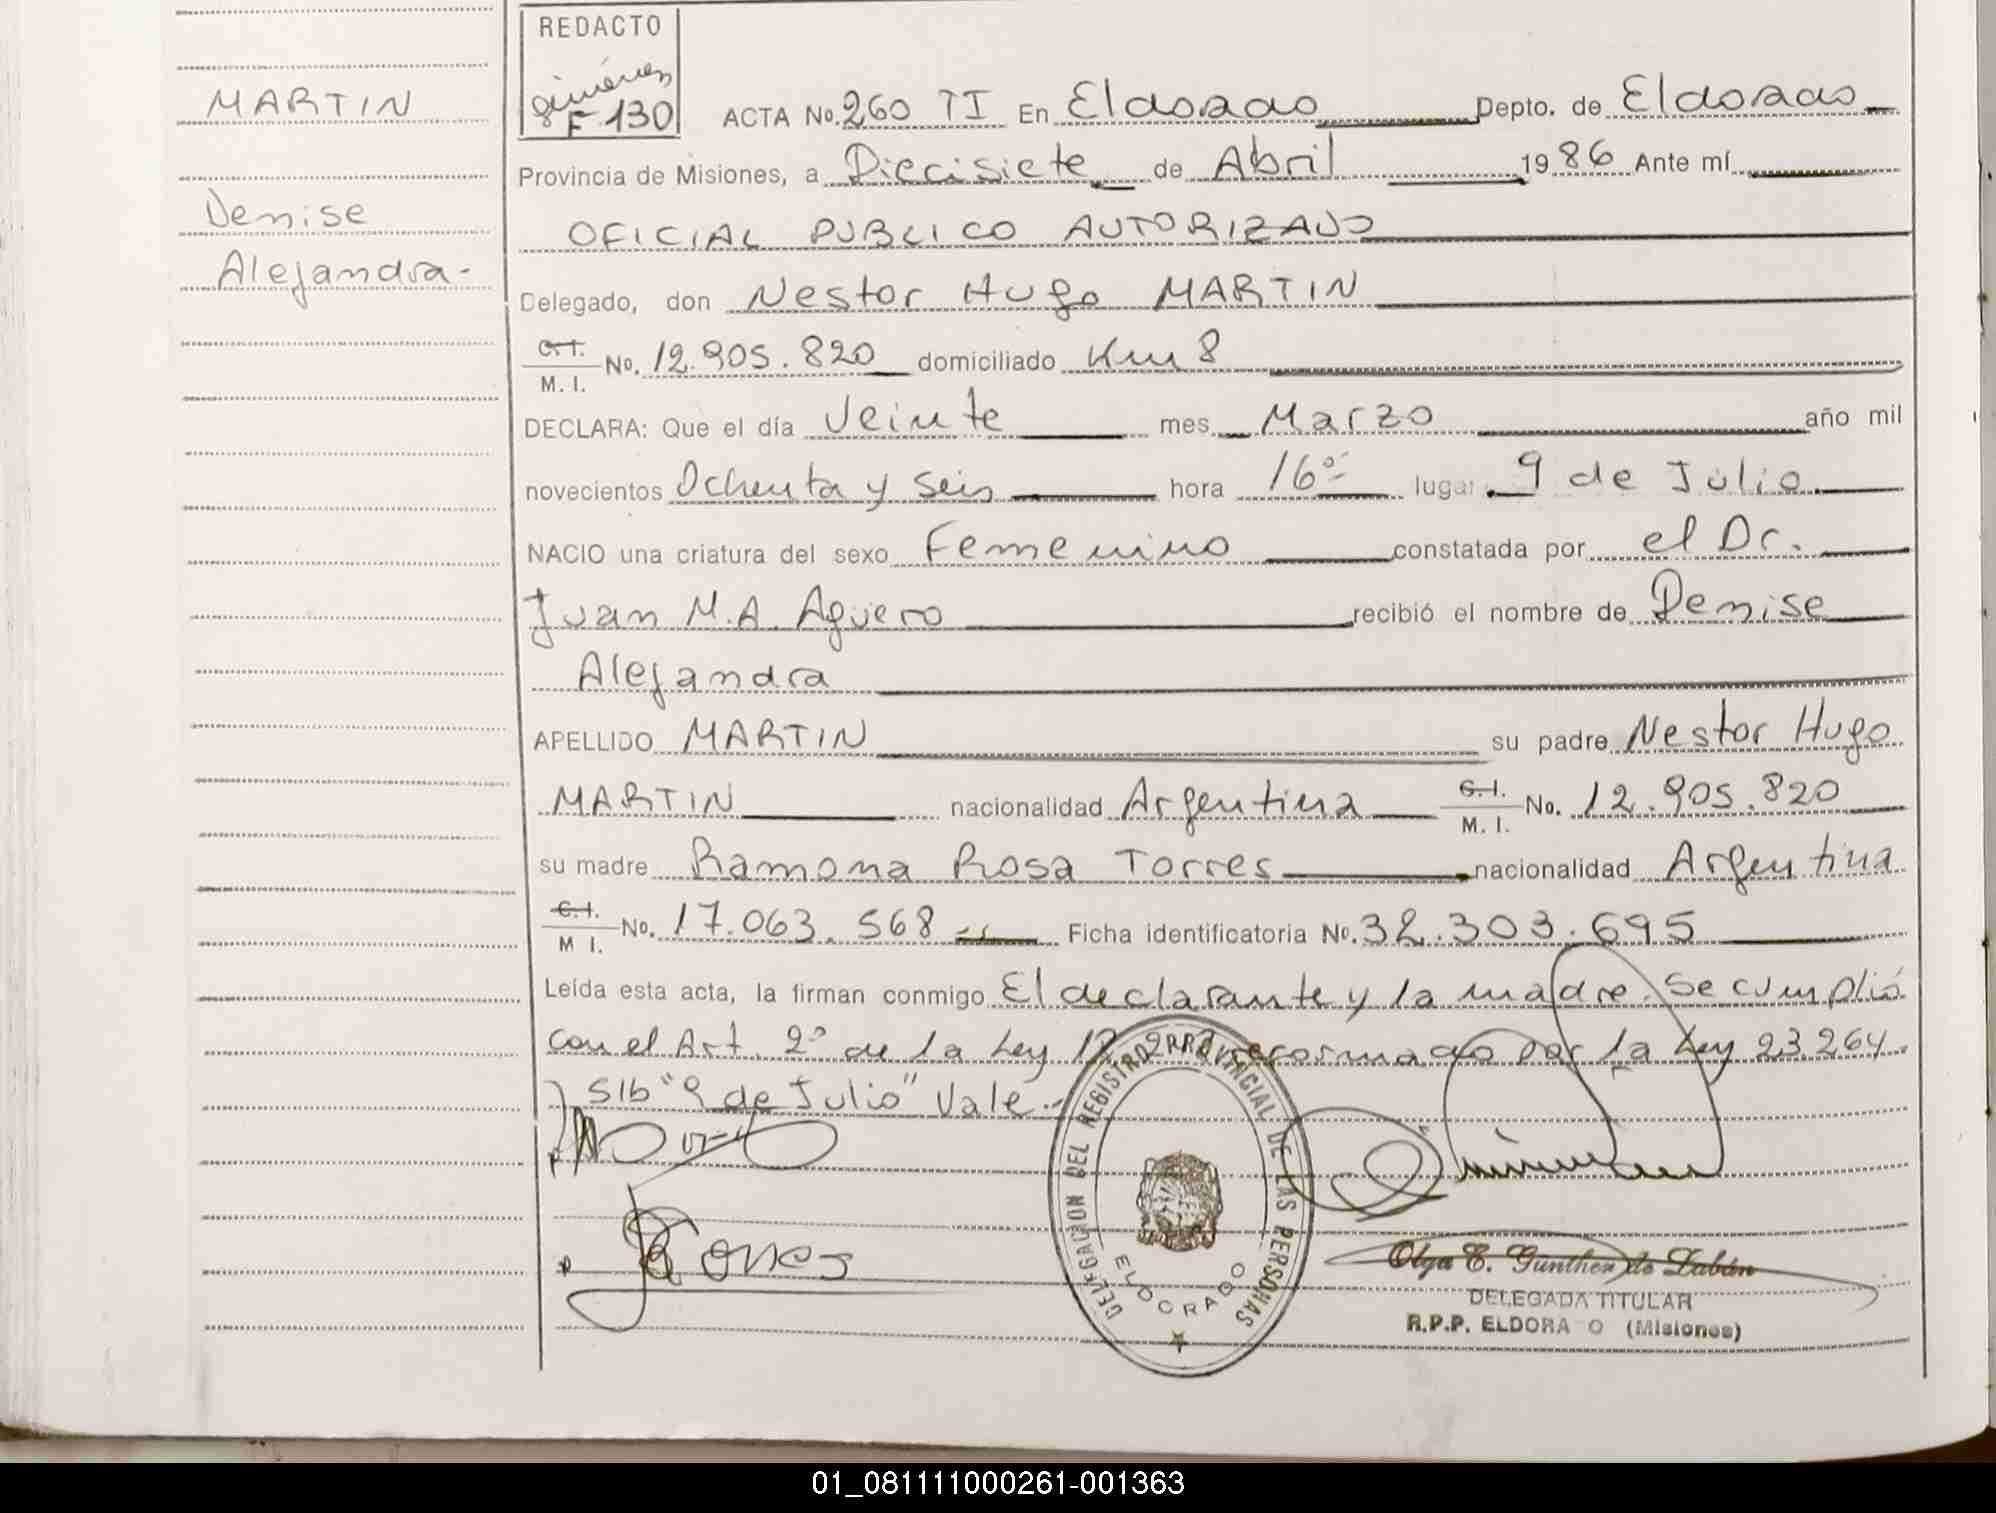 REDACTO
Giménez
F 130
MARTIN
Denise
Alejandra-
ACTA No. 260 TI En Eldorado Depto. de Eldorado
Provincia de Misiones, a Diecisiete de Abril 1986 Ante mí
OFICIAL PUBLICO AUTORIZADO
Delegado, don Nestor Hugo MARTIN
C.I. M. I. No. 12.905.820 domiciliado Km 8
DECLARA: Que el día Veinte mes Marzo año mil
novecientos Ochenta y seis hora 16 lugar 9 de Julio
NACIO una criatura del sexo Femenino constatada por el Dr.
Juan M.A. Aguero recibió el nombre de Denise
Alejandra
APELLIDO MARTIN su padre Nestor Hugo
MARTIN nacionalidad Argentina C.I. M. I. No. 12.905.820
su madre Ramona Rosa Torres nacionalidad Argentina
C.I. M I. No. 17.063.568 Ficha identificatoria No. 32.303.695
Leída esta acta, la firman conmigo El declarante y la madre. Se cumplió
con el Art. 2º de la Ley reformado por la Ley 23.264.
S/b "9 de Julio" Vale.-
DELEGACION DEL REGISTRO PROVINCIAL DE LAS PERSONAS
ELDORADO
Olga E. Günther de Labán
DELEGADA TITULAR
R.P.P. ELDORA O (Misiones)
01_081111000261-001363